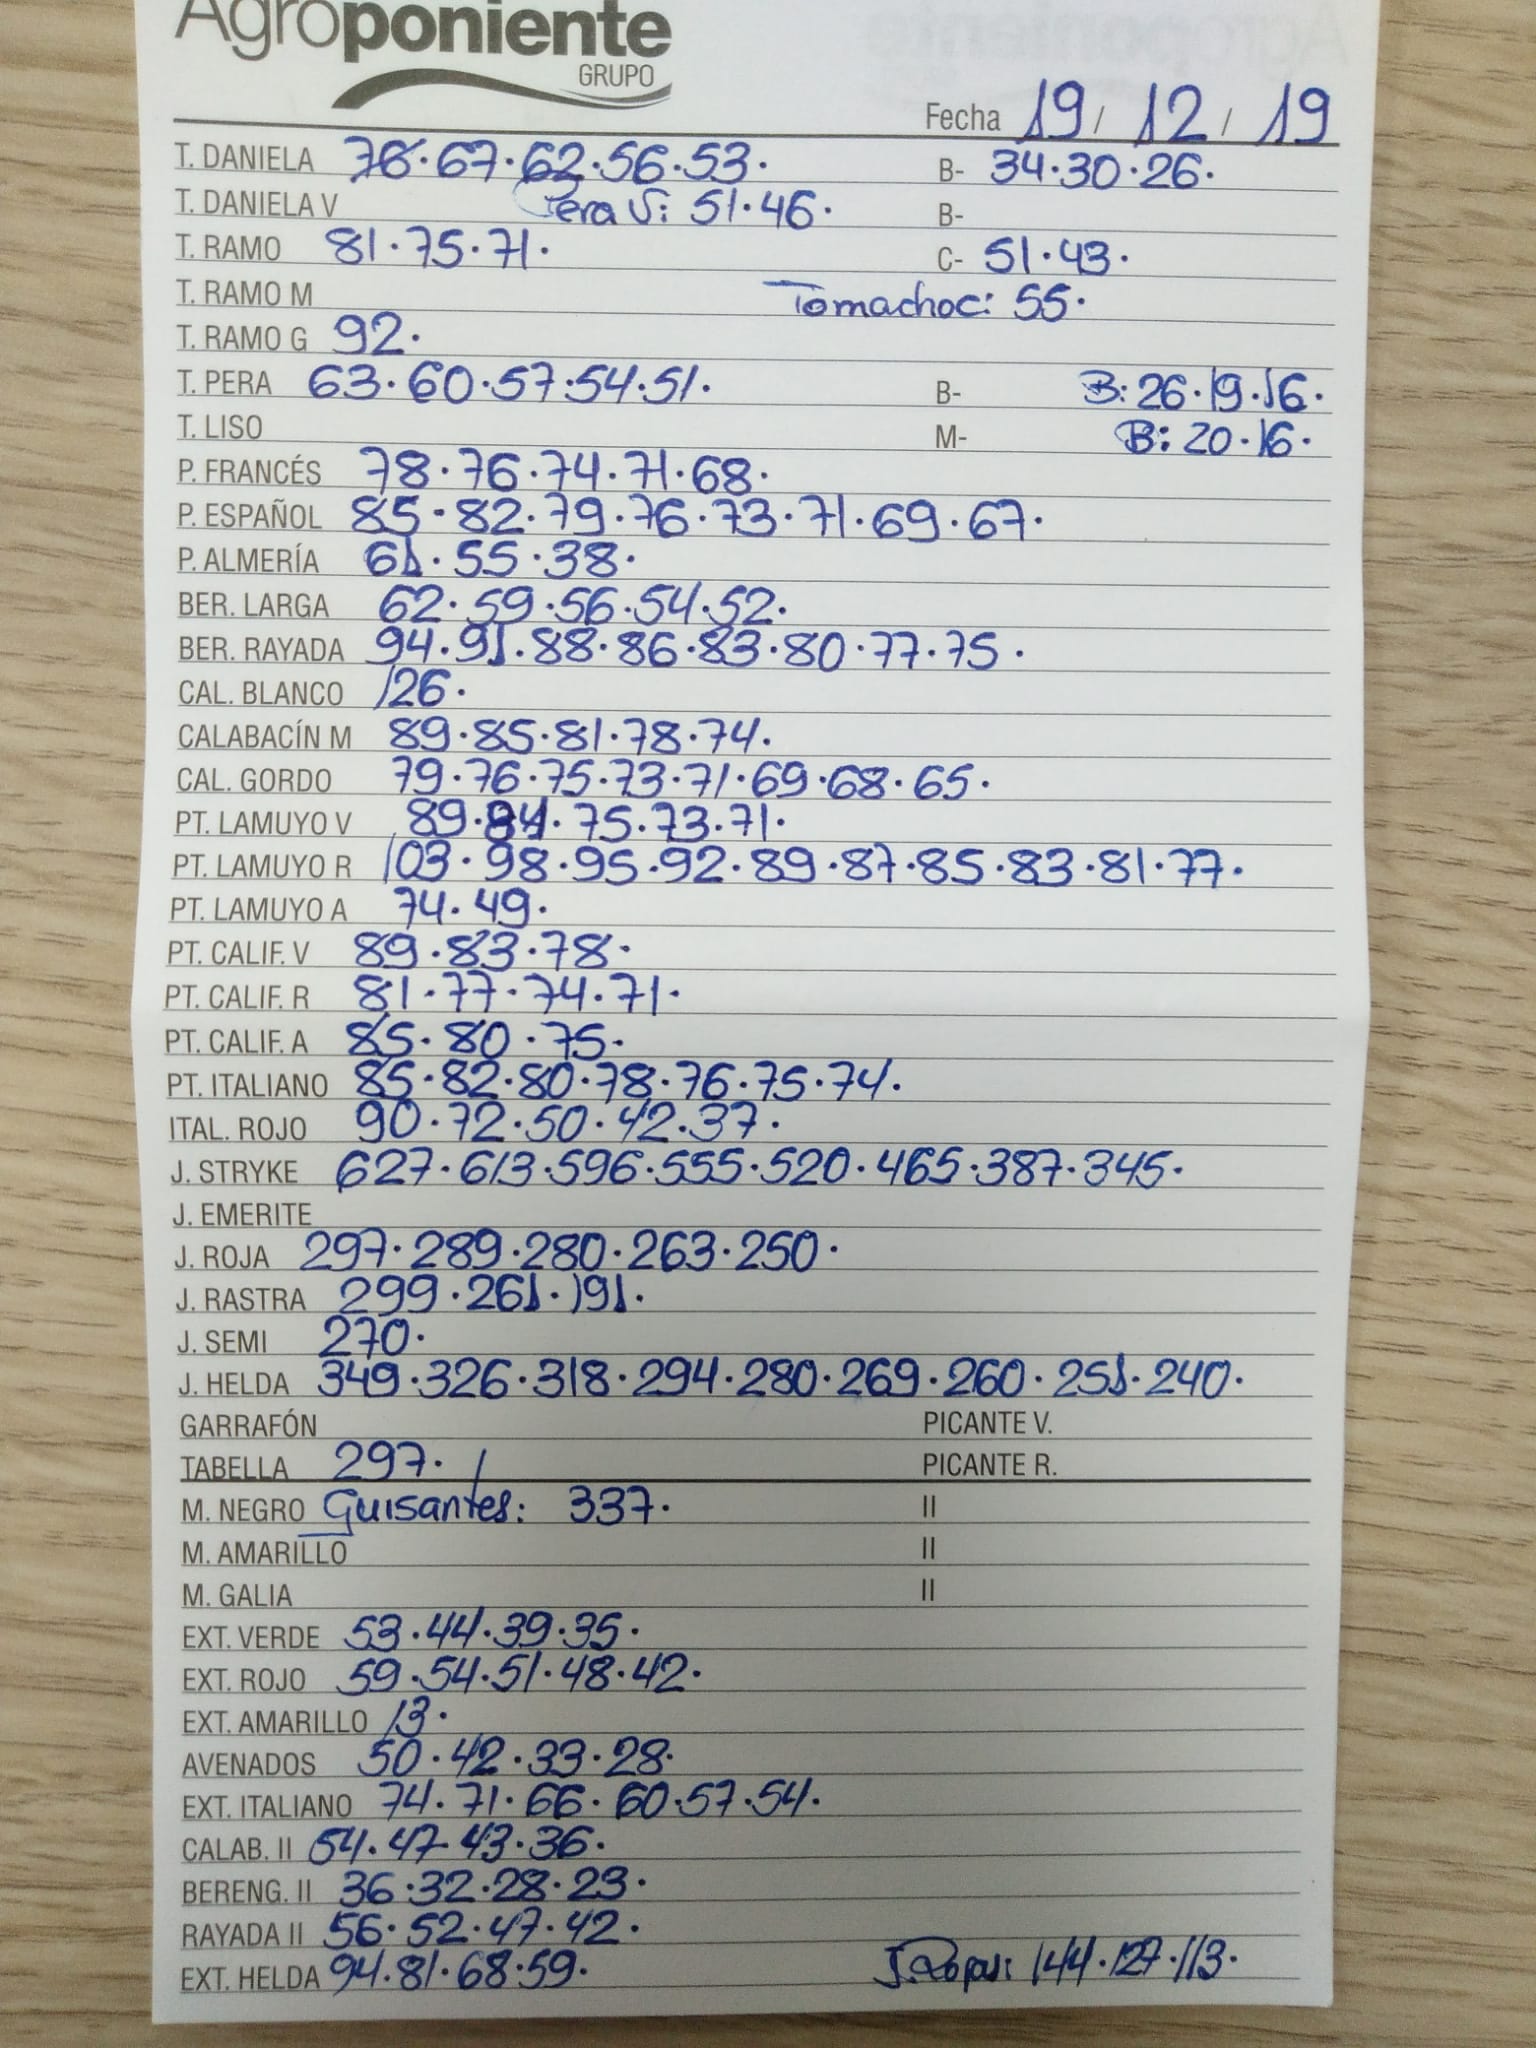 Agroponiente
GRUPO
Fecha 19 / 12 / 19
T. DANIELA 78·67·62·56·53· B- 34·30·26·
T. DANIELA V Pera V: 51·46· B-
T. RAMO 81·75·71· C- 51·43·
T. RAMO M Tomachoc: 55·
T. RAMO G 92·
T. PERA 63·60·57·54·51· B- B: 26·19·16·
T. LISO M- B: 20·16·
P. FRANCÉS 78·76·74·71·68·
P. ESPAÑOL 85·82·79·76·73·71·69·67·
P. ALMERÍA 61·55·38·
BER. LARGA 62·59·56·54·52·
BER. RAYADA 94·91·88·86·83·80·77·75·
CAL. BLANCO 126·
CALABACÍN M 89·85·81·78·74·
CAL. GORDO 79·76·75·73·71·69·68·65·
PT. LAMUYO V 89· 75·73·71·
PT. LAMUYO R 103·98·95·92·89·87·85·83·81·77·
PT. LAMUYO A 74·49·
PT. CALIF. V 89·83·78·
PT. CALIF. R 81·77·74·71·
PT. CALIF. A 85·80·75·
PT. ITALIANO 85·82·80·78·76·75·74·
ITAL. ROJO 90·72·50·42·37·
J. STRYKE 627·613·596·555·520·465·387·345·
J. EMERITE
J. ROJA 297·289·280·263·250·
J. RASTRA 299·261·191·
J. SEMI 270·
J. HELDA 349·326·318·294·280·269·260·251·240·
GARRAFÓN PICANTE V.
TABELLA 297· PICANTE R.
M. NEGRO Guisantes: 337· II
M. AMARILLO II
M. GALIA II
EXT. VERDE 53·44·39·35·
EXT. ROJO 59·54·51·48·42·
EXT. AMARILLO 13·
AVENADOS 50·42·33·28·
EXT. ITALIANO 74·71·66·60·57·54·
CALAB. II 54·47·43·36·
BERENG. II 36·32·28·23·
RAYADA II 56·52·47·42·
EXT. HELDA 94·81·68·59· 144·127·113·